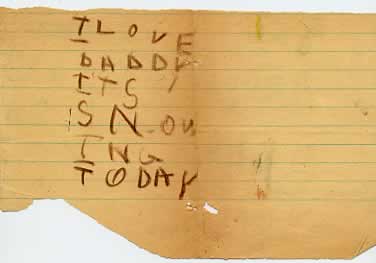 I LOVE
DADDY
ITS
SNOW
ING
TODAY